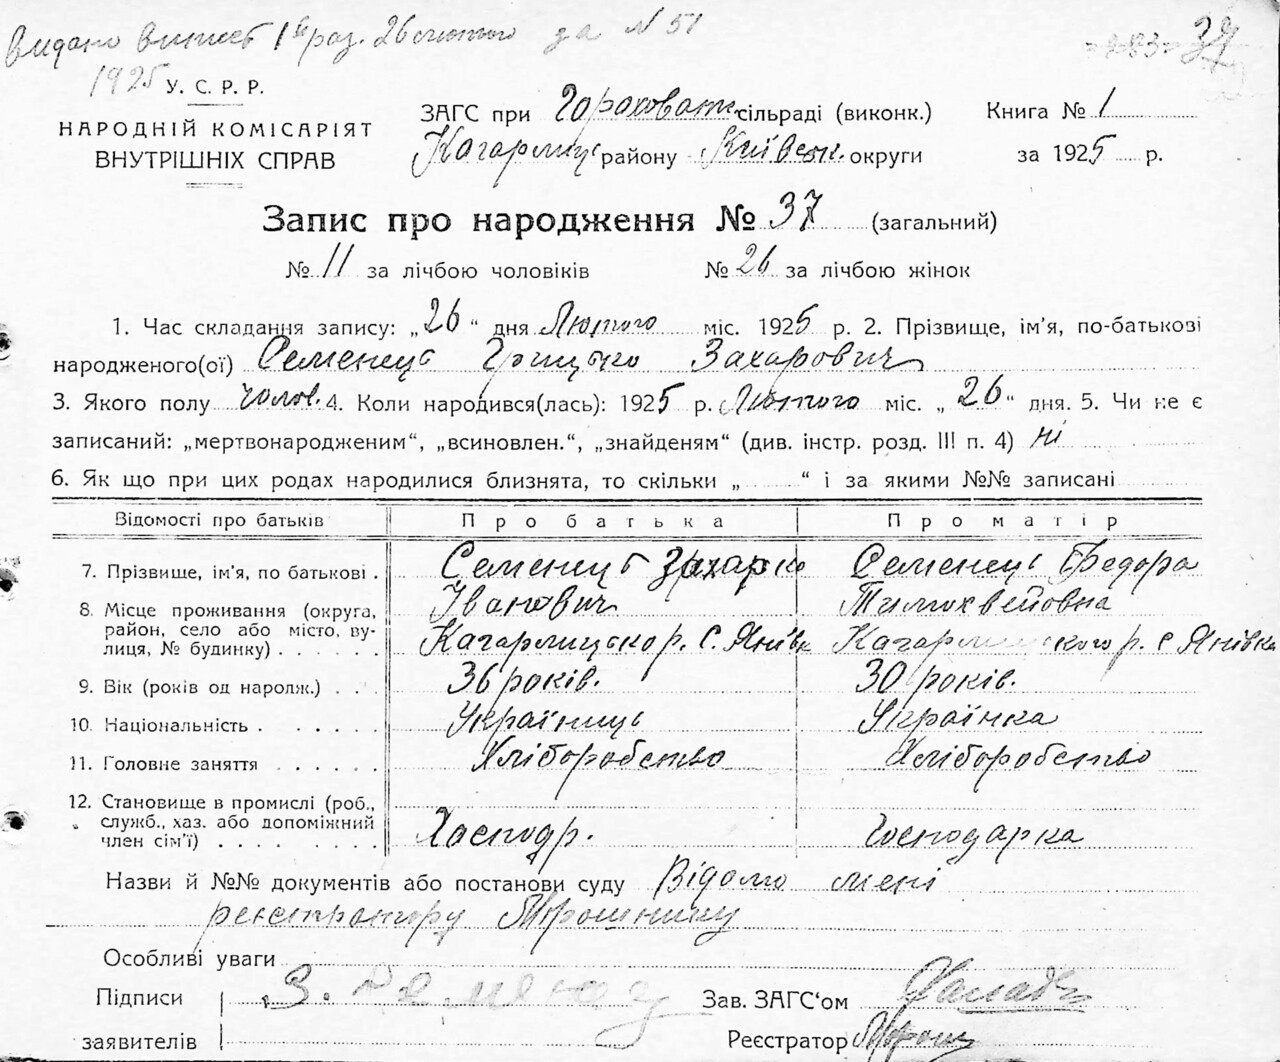 Видано виппсь 1й раз. 26 лютого за № 51
1925
37
У. С. Р. Р.
НАРОДНІЙ КОМІСАРІЯТ
ВНУТРІШНІХ СПРАВ
ЗАГС при Гороховат. сільраді (виконк.)
Кагарлиць району Київськ. округи
Книга № 1
за 1925 р.
Запис про народження № 37 (загальний)
№ 11 за лічбою чоловіків № 26 за лічбою жінок
1. Час складання запису: „26“ дня Лютого міс. 1925 р. 2. Прізвище, ім'я, по-батькові
народженого(ої) Семенець Грицько Захарович
3. Якого полу чолов. 4. Коли народився(лась): 1925 р. Лютого міс. „26“ дня. 5. Чи не є
записаний: „мертвонародженим“, „всиновлен.“, „знайденям“ (див. інстр. розд. III п. 4) ні
6. Як що при цих родах народилися близнята, то скільки „ “ і за якими №№ записані
Відомості про батьків Про батька Про матір
7. Прізвище, ім'я, по батькові . Семенець Захарко Семенець Федора
Іванович Тимохвейовна
8. Місце проживання (округа,
район, село або місто, ву-
лиця, № будинку) . . . . . . Кагарлицько р. С. Янівк Кагарлицкого р. с Янівка
9. Вік (років од народж.) . . . 36 років. 30 років.
10. Національність . . . . . . Українець Українка
11. Головне заняття . . . . . Хліборобство Хліборобство
12. Становище в промислі (роб.,
служб., хаз. або допоміжний
член сім'ї) . . . . . . . . Хасподр. Господарка
Назви й №№ документів або постанови суду Відомо мені
реєстратору Мірошнику
Особливі уваги
Підписи
заявителів
З. Семенець
Зав. ЗАГС'ом
Реєстратор Мірош